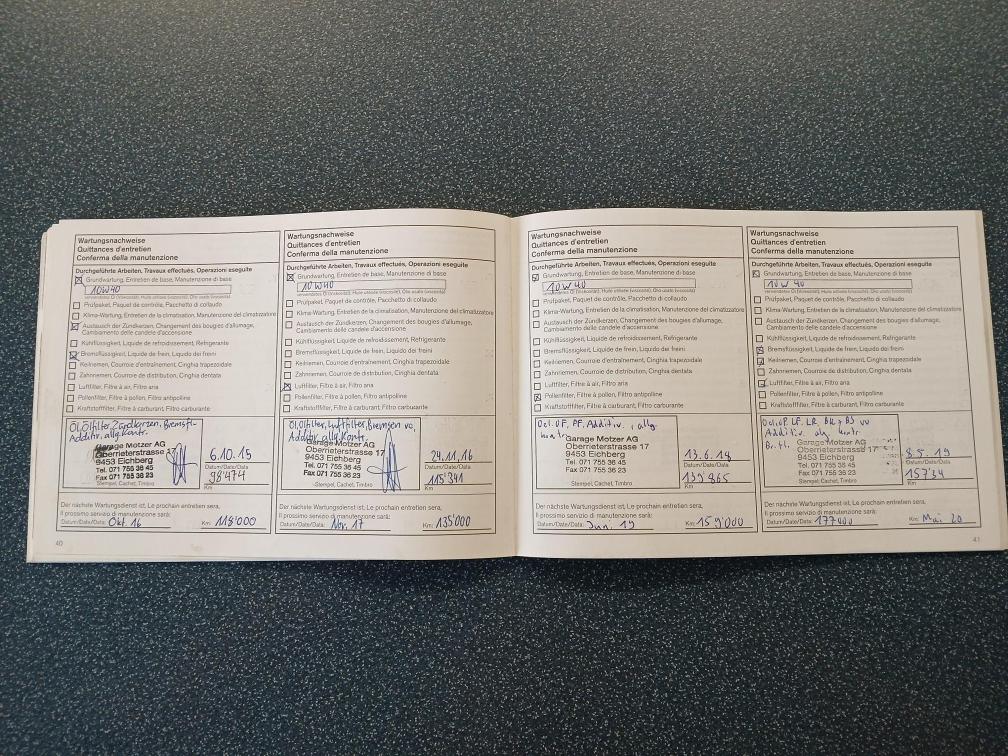 Wartungsnachweise
Quittances d'entretien
Conferma della manutenzione
Durchgeführte Arbeiten, Travaux effectués, Operazioni eseguite
Grundwartung, Entretien de base, Manutenzione di base
10W40
verwendetes Öl (Viskosität), Huile utilisée (viscosité), Olio usato (viscosità)
Prüfpaket, Paquet de contrôle, Pacchetto di collaudo
Klima-Wartung, Entretien de la climatisation, Manutenzione del climatizzatore
Austausch der Zündkerzen, Changement des bougies d'allumage,
Cambiamento delle candele d'accensione
Kühlflüssigkeit, Liquide de refroidissement, Refrigerante
Bremsflüssigkeit, Liquide de frein, Liquido dei freini
Keilriemen, Courroie d'entraînement, Cinghia trapezoidale
Zahnriemen, Courroie de distribution, Cinghia dentata
Luftfilter, Filtre à air, Filtro aria
Pollenfilter, Filtre à pollen, Filtro antipolline
Kraftstofffilter, Filtre à carburant, Filtro carburante
Öl, Ölfilter, Zündkerzen, Bremsfl.
Additiv, allg. Kontr.
Garage Motzer AG
Oberrieterstrasse 17
9453 Eichberg
Tel. 071 755 36 45
Fax 071 755 36 23
Stempel, Cachet, Timbro
6.10.15
Datum/Date/Data
98'474
Km
Der nächste Wartungsdienst ist, Le prochain entretien sera,
Il prossimo servizio di manutenzione sarà:
Datum/Date/Data: Okt. 16 Km: 118'000
40
Wartungsnachweise
Quittances d'entretien
Conferma della manutenzione
Durchgeführte Arbeiten, Travaux effectués, Operazioni eseguite
Grundwartung, Entretien de base, Manutenzione di base
10W40
verwendetes Öl (Viskosität), Huile utilisée (viscosité), Olio usato (viscosità)
Prüfpaket, Paquet de contrôle, Pacchetto di collaudo
Klima-Wartung, Entretien de la climatisation, Manutenzione del climatizzatore
Austausch der Zündkerzen, Changement des bougies d'allumage,
Cambiamento delle candele d'accensione
Kühlflüssigkeit, Liquide de refroidissement, Refrigerante
Bremsflüssigkeit, Liquide de frein, Liquido dei freini
Keilriemen, Courroie d'entraînement, Cinghia trapezoidale
Zahnriemen, Courroie de distribution, Cinghia dentata
Luftfilter, Filtre à air, Filtro aria
Pollenfilter, Filtre à pollen, Filtro antipolline
Kraftstofffilter, Filtre à carburant, Filtro carburante
Öl, Ölfilter, Luftfilter, Bremsen vo,
Additiv, allg. Kontr.
Garage Motzer AG
Oberrieterstrasse 17
9453 Eichberg
Tel. 071 755 36 45
Fax 071 755 36 23
Stempel, Cachet, Timbro
24.11.16
Datum/Date/Data
115'341
Km
Der nächste Wartungsdienst ist, Le prochain entretien sera,
Il prossimo servizio di manutenzione sarà:
Datum/Date/Data: Nov. 17 Km: 135'000
Wartungsnachweise
Quittances d'entretien
Conferma della manutenzione
Durchgeführte Arbeiten, Travaux effectués, Operazioni eseguite
Grundwartung, Entretien de base, Manutenzione di base
10W40
verwendetes Öl (Viskosität), Huile utilisée (viscosité), Olio usato (viscosità)
Prüfpaket, Paquet de contrôle, Pacchetto di collaudo
Klima-Wartung, Entretien de la climatisation, Manutenzione del climatizzatore
Austausch der Zündkerzen, Changement des bougies d'allumage,
Cambiamento delle candele d'accensione
Kühlflüssigkeit, Liquide de refroidissement, Refrigerante
Bremsflüssigkeit, Liquide de frein, Liquido dei freini
Keilriemen, Courroie d'entraînement, Cinghia trapezoidale
Zahnriemen, Courroie de distribution, Cinghia dentata
Luftfilter, Filtre à air, Filtro aria
Pollenfilter, Filtre à pollen, Filtro antipolline
Kraftstofffilter, Filtre à carburant, Filtro carburante
Oel, OF, PF, Additiv, allg.
Kontr
Garage Motzer AG
Oberrieterstrasse 17
9453 Eichberg
Tel. 071 755 36 45
Fax 071 755 36 23
Stempel, Cachet, Timbro
13.6.18
Datum/Date/Data
139'865
Km
Der nächste Wartungsdienst ist, Le prochain entretien sera,
Il prossimo servizio di manutenzione sarà:
Datum/Date/Data: Juni 19 Km: 159'000
Wartungsnachweise
Quittances d'entretien
Conferma della manutenzione
Durchgeführte Arbeiten, Travaux effectués, Operazioni eseguite
Grundwartung, Entretien de base, Manutenzione di base
10W40
verwendetes Öl (Viskosität), Huile utilisée (viscosité), Olio usato (viscosità)
Prüfpaket, Paquet de contrôle, Pacchetto di collaudo
Klima-Wartung, Entretien de la climatisation, Manutenzione del climatizzatore
Austausch der Zündkerzen, Changement des bougies d'allumage,
Cambiamento delle candele d'accensione
Kühlflüssigkeit, Liquide de refroidissement, Refrigerante
Bremsflüssigkeit, Liquide de frein, Liquido dei freini
Keilriemen, Courroie d'entraînement, Cinghia trapezoidale
Zahnriemen, Courroie de distribution, Cinghia dentata
Luftfilter, Filtre à air, Filtro aria
Pollenfilter, Filtre à pollen, Filtro antipolline
Kraftstofffilter, Filtre à carburant, Filtro carburante
Oel, OF, LF,
Additiv
Garage Motzer AG
Oberrieterstrasse 17
9453 Eichberg
Tel. 071 755 36 45
Fax 071 755 36 23
Stempel, Cachet, Timbro
8.5.19
Datum/Date/Data
Km
Der nächste Wartungsdienst ist, Le prochain entretien sera,
Il prossimo servizio di manutenzione sarà:
Datum/Date/Data: 177000 Km: Mai 20
41